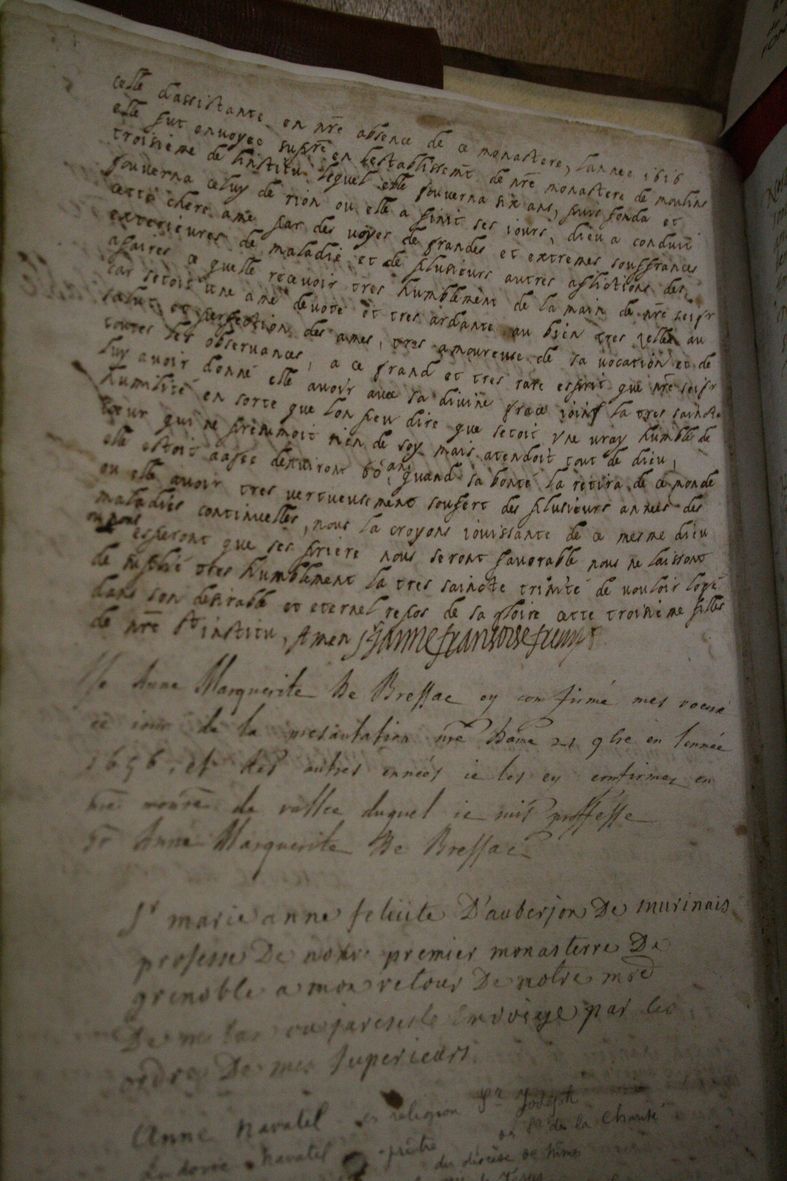 celle dassistante en nre absence de ce monastere, lannee 1616
elle fut envoyee supre en lestablissemt de nre monastere de moulins
troisieme de linstitu lequel elle gouverna six ans, puis fonda et
gouverna celuy de rion ou elle a finit ses iours, dieu a conduit
cette chere ame par des voyes de grandes et extremes souffrances
exterieures de maladie et de plusieurs autres aflictions des
afaires ce quelle recevoir tres humblement de la main de nre seigr
car setoit une ame devote et tres ardante au bien tres zellee au
salut et perfection des ames, tres amoureuse de sa vocation et de
toutes les observances, a ce grand et tres rare esprit que nre seigr
luy avoir donné elle avoir avec sa divine grace joint la tres saincte
humilité en sorte que lon peu dire que setoit une vray humble de
coeur qui ne presumoit rien de soy mais atendoit tout de dieu,
elle estoit aagee denviron 60 ans quand sa bonté la retira de ce monde
ou elle avoir tres vertueusement soufert des plusieurs annees des
maladies continuelles, nous la croyons iouissante de ce mesme dieu
ou nous esperont que ses priere nous seront favorable nous ne laissont
de suplié tres humblement la tres saincte trinité de vouloir logé
dans son desirable et eternel repos de sa gloire cette troisieme filles
de nre St institu, Amen sr Janne françoise fremyot
Je Anne Marguerite De Bressac ey confirmé mes voeux
ce iour de la presantation nre Dame 21 9bre en lennée
1656, et des autres ennees ie les ey confirmez en
nre monre de vallce duquel ie suis proffesse
sr Anne Marguerite De Bressac
Sr marie anne felicite D'auberjon De murinais
professe De notre premier monasterre De
grenoble a mon retour De notre
De ou jaresiste Envoiye par les
ordres De mes superieurs.
Anne Navatel en religion Sr Joseph
Navatel prêtre de la Charité
du diocèse de